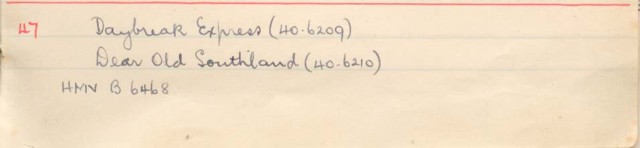 47 Daybreak Express (40-6209)
Dear Old Southland (40-6210)
HMV B 6468